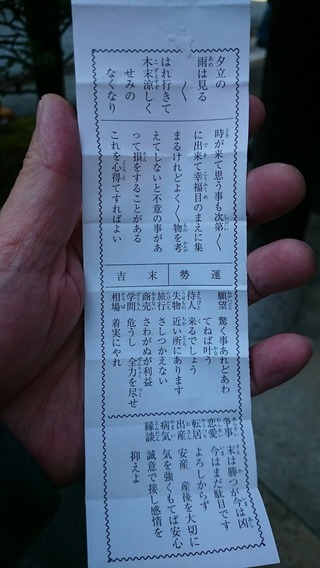 夕立の
雨は見る
〳〵
はれ行きて
木末涼しく
せみの
なくなり
時が来て思う事も次第〳〵
に出来て幸福目のまえに集
まるけれどよく〳〵物を考
えてしないと不意の事があ
って損をすることがある
これを心得てすればよい
運勢 末吉
願望 驚く事あれどあわ
てねば叶う
待人 来るでしょう
失物 近い所にあります
旅行 さしつかえない
商売 さわがぬが利益
学問 危うし 全力を尽せ
相場 着実にやれ
争事 末は勝つが今は凶
恋愛 今はまだ駄目です
転居 よろしからず
出産 安産 産後を大切に
病気 気を強くもてば安心
縁談 誠意で接し感情を
抑えよ